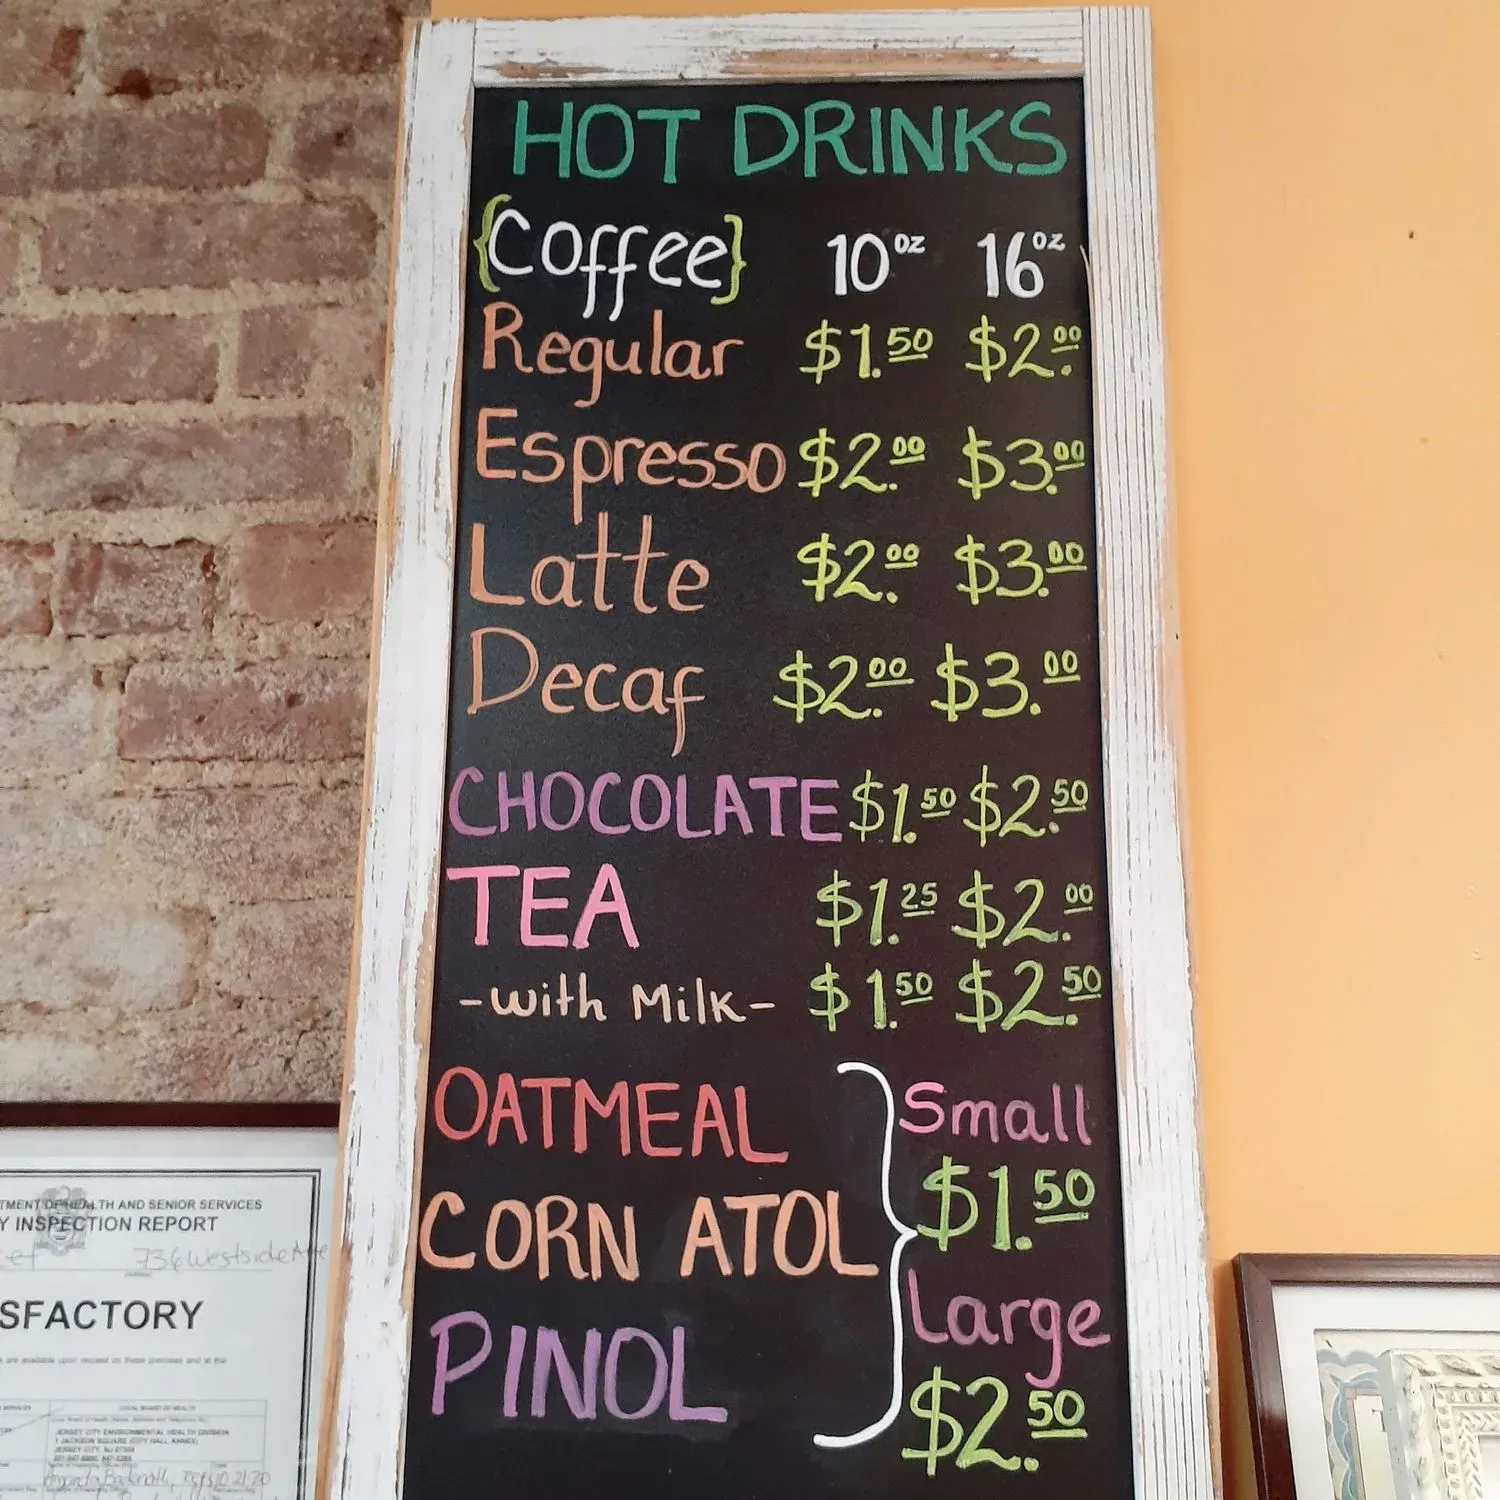 HOT DRINKS
{Coffee} 10oz 16oz
Regular $1.50 $2.00
Espresso $2.00 $3.00
Latte $2.00 $3.00
Decaf $2.00 $3.00
CHOCOLATE $1.50 $2.50
TEA $1.25 $2.00
-with Milk- $1.50 $2.50
OATMEAL
CORN ATOL
PINOL
Small
$1.50
Large
$2.50
TMENT OF HEALTH AND SENIOR SERVICES
Y INSPECTION REPORT
736 Westside Ave
SFACTORY
are available upon request on these premises and at the
LOCAL BOARD OF HEALTH
JERSEY CITY ENVIRONMENTAL HEALTH DIVISION
1 JACKSON SQUARE (CITY HALL ANNEX)
JERSEY CITY, NJ
10.21.20